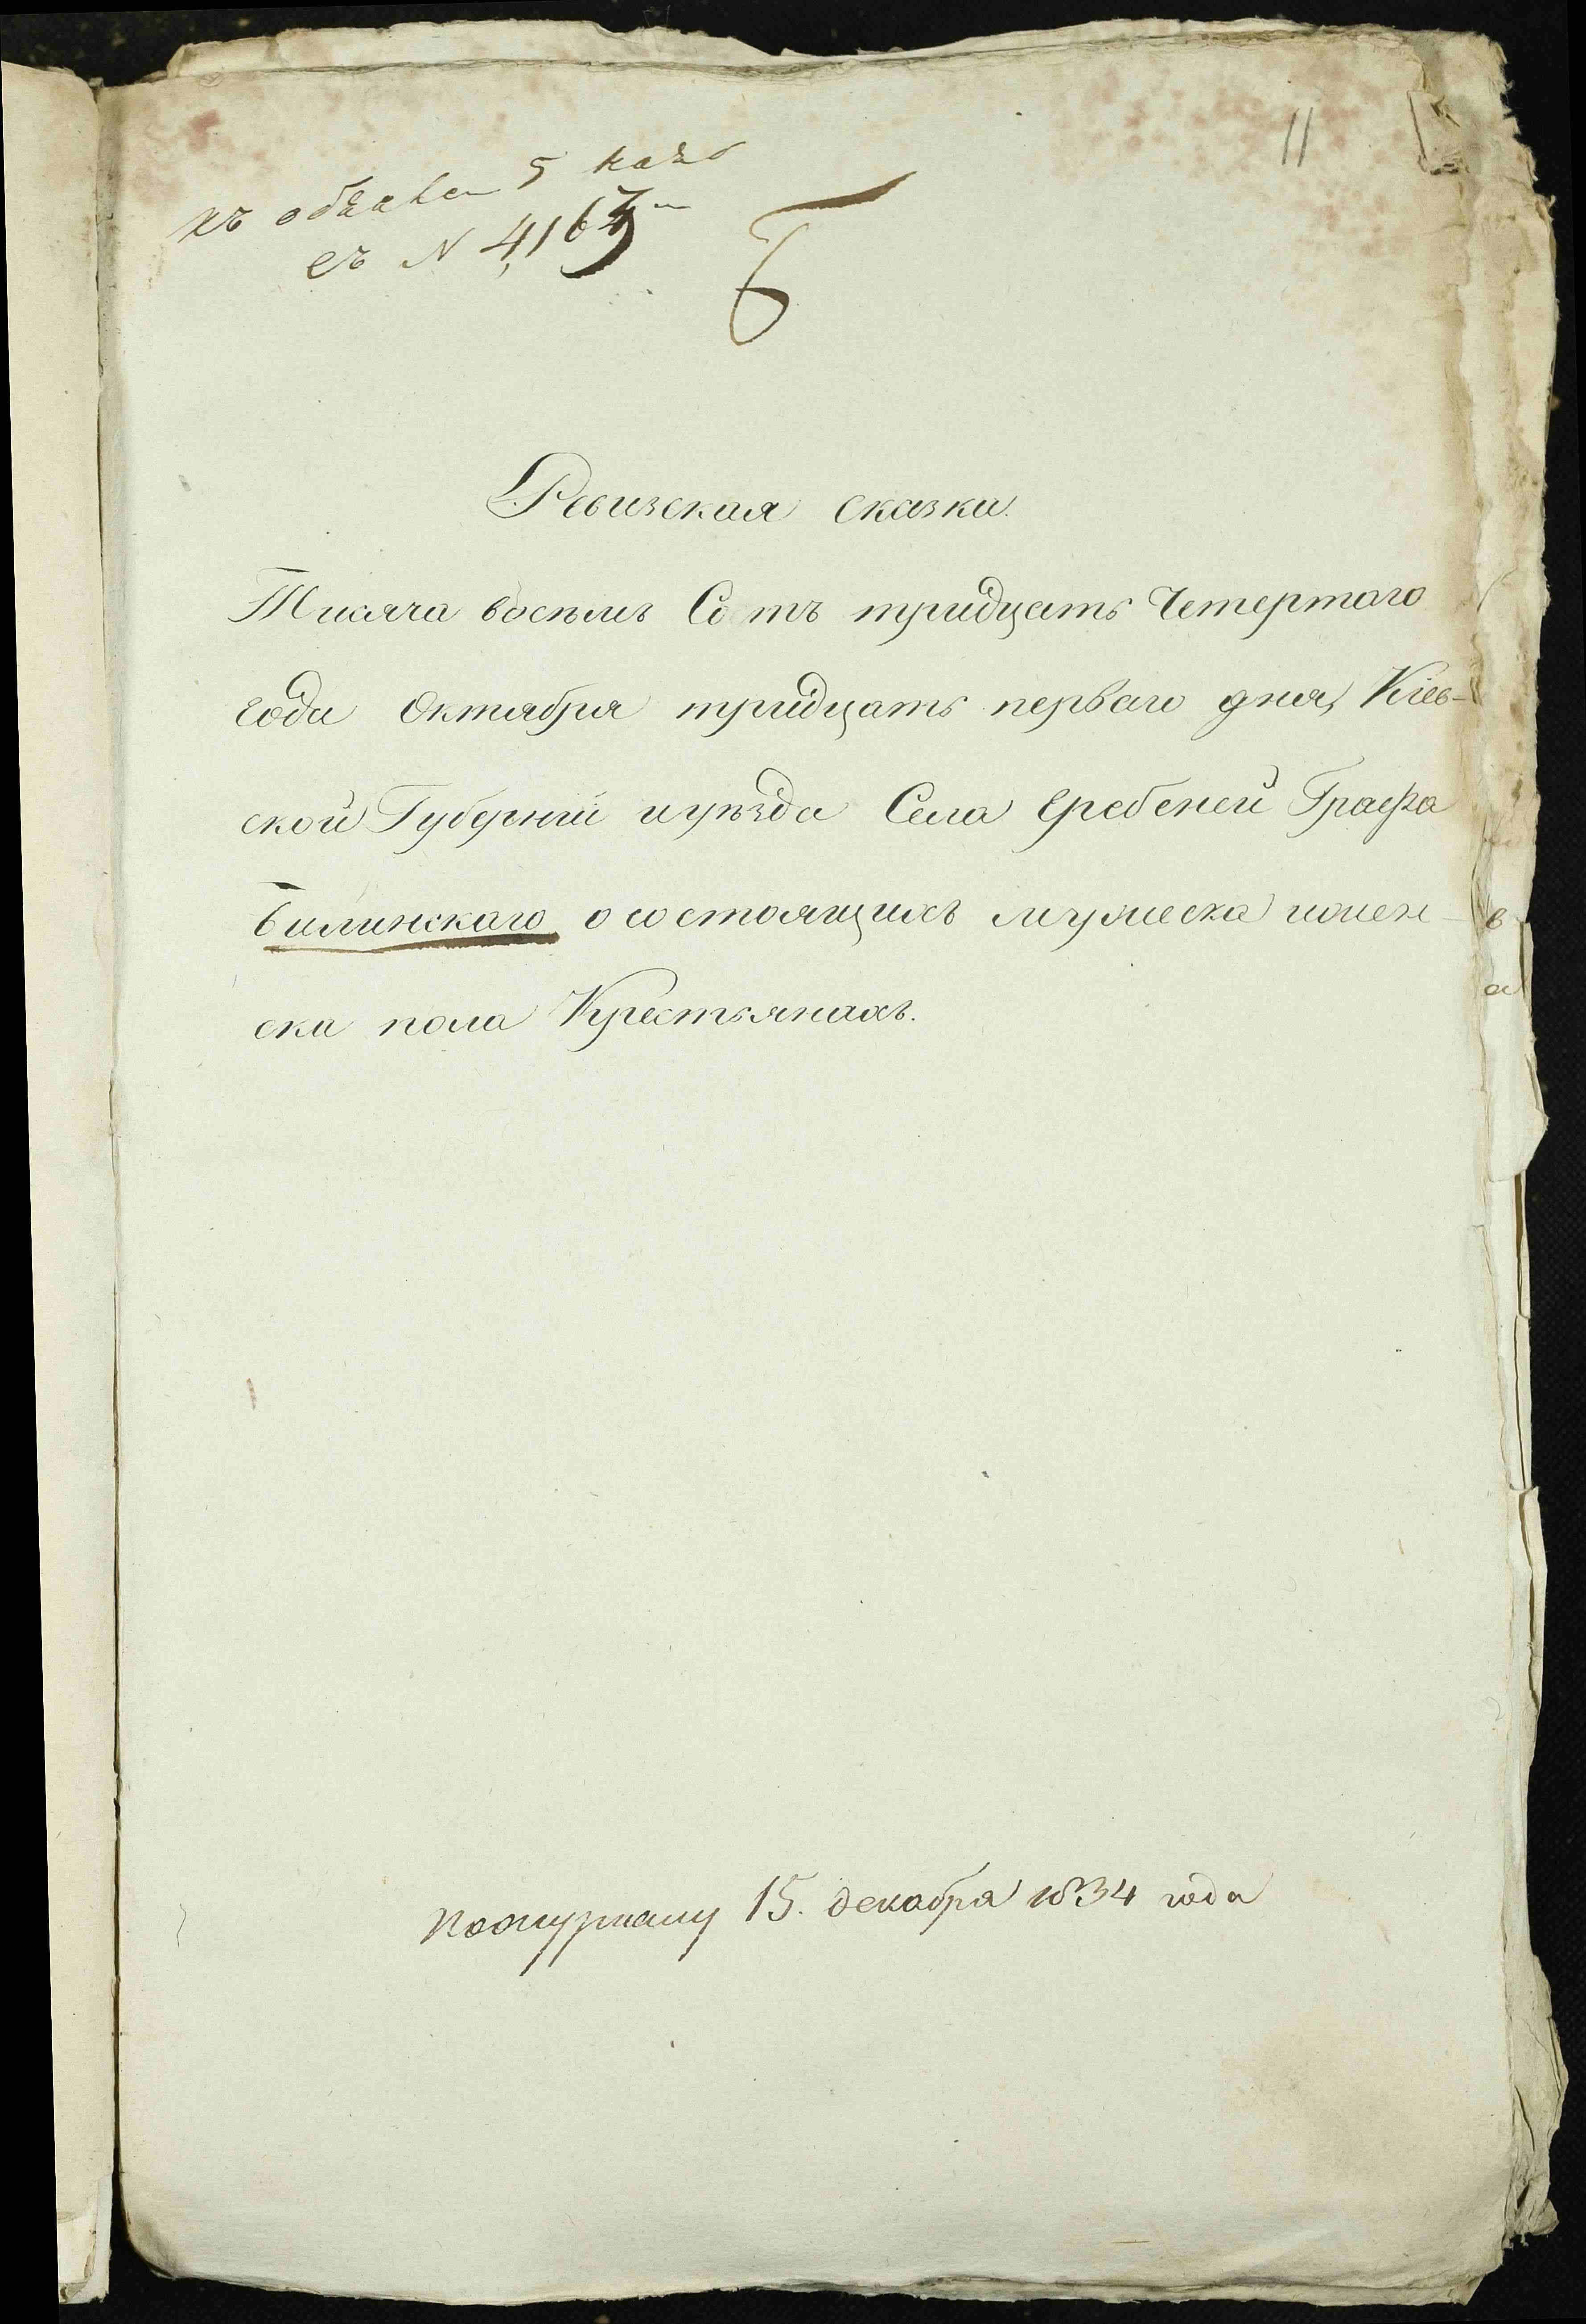 11
къ объявлен 5
съ N 4,163
Б
Ревизская сказка.
Тисяча восемь Сотъ тридцать Четертаго
года Октября тридцать перваго дня, Кіев-
ской Губерніи иуѣзда Села Гребеней Графа
Билинскаго осостоящихъ мужеска ижен-
ска пола Крестьянахъ.
Пожурналу 15. декабря 1834 года